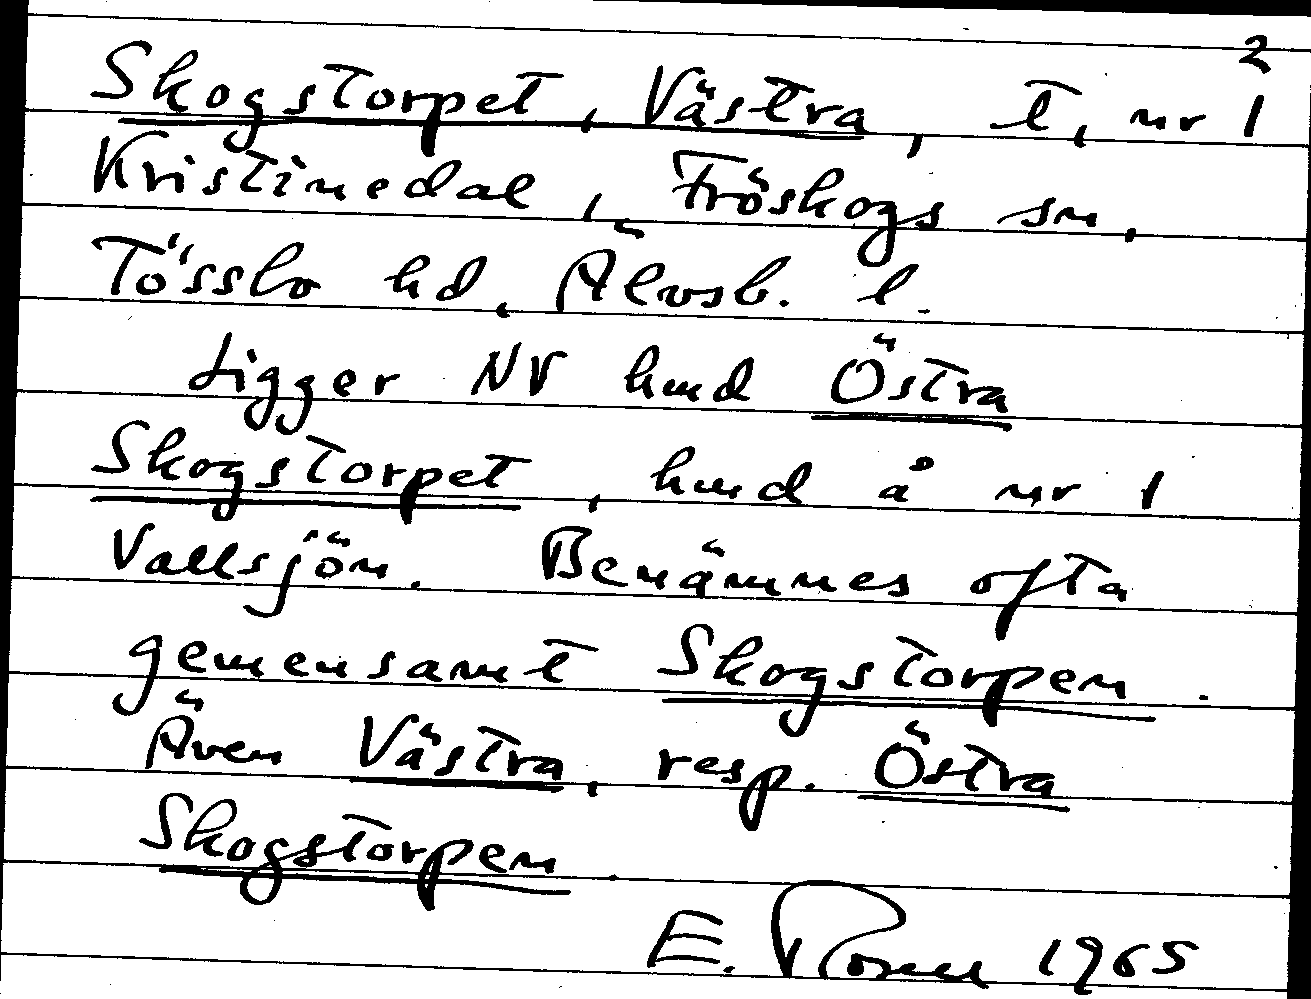 2
Skogstorpet, Västra, t, nr 1
Kristinedal, Fröskogs sn,
Tössbo hd, Älvsb. l.
Ligger NV hmd Östra
Skogstorpet, hmd å nr 1
Vallsjön. Benämnes ofta
gemensamt Skogstorpen.
Även Västra, resp. Östra
Skogstorpen.
E. 1965